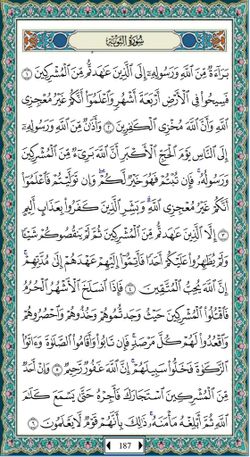 سُورَةُ التَّوْبَةِ
بَرَآءَةٌ مِّنَ ٱللَّهِ وَرَسُولِهِۦٓ إِلَى ٱلَّذِينَ عَٰهَدتُّم مِّنَ ٱلْمُشْرِكِينَ ١
فَسِيحُوا۟ فِى ٱلْأَرْضِ أَرْبَعَةَ أَشْهُرٍ وَٱعْلَمُوٓا۟ أَنَّكُمْ غَيْرُ مُعْجِزِى
ٱللَّهِ وَأَنَّ ٱللَّهَ مُخْزِى ٱلْكَٰفِرِينَ ٢ وَأَذَٰنٌ مِّنَ ٱللَّهِ وَرَسُولِهِۦٓ
إِلَى ٱلنَّاسِ يَوْمَ ٱلْحَجِّ ٱلْأَكْبَرِ أَنَّ ٱللَّهَ بَرِىٓءٌ مِّنَ ٱلْمُشْرِكِينَ
وَرَسُولُهُۥ فَإِن تُبْتُمْ فَهُوَ خَيْرٌ لَّكُمْ وَإِن تَوَلَّيْتُمْ فَٱعْلَمُوٓا۟
أَنَّكُمْ غَيْرُ مُعْجِزِى ٱللَّهِ وَبَشِّرِ ٱلَّذِينَ كَفَرُوا۟ بِعَذَابٍ أَلِيمٍ
٣ إِلَّا ٱلَّذِينَ عَٰهَدتُّم مِّنَ ٱلْمُشْرِكِينَ ثُمَّ لَمْ يَنقُصُوكُمْ شَيْـًٔا
وَلَمْ يُظَٰهِرُوا۟ عَلَيْكُمْ أَحَدًا فَأَتِمُّوٓا۟ إِلَيْهِمْ عَهْدَهُمْ إِلَىٰ مُدَّتِهِمْ إِنَّ
ٱللَّهَ يُحِبُّ ٱلْمُتَّقِينَ ٤ فَإِذَا ٱنسَلَخَ ٱلْأَشْهُرُ ٱلْحُرُمُ
فَٱقْتُلُوا۟ ٱلْمُشْرِكِينَ حَيْثُ وَجَدتُّمُوهُمْ وَخُذُوهُمْ وَٱحْصُرُوهُمْ
وَٱقْعُدُوا۟ لَهُمْ كُلَّ مَرْصَدٍ فَإِن تَابُوا۟ وَأَقَامُوا۟ ٱلصَّلَوٰةَ وَءَاتَوُا۟
ٱلزَّكَوٰةَ فَخَلُّوا۟ سَبِيلَهُمْ إِنَّ ٱللَّهَ غَفُورٌ رَّحِيمٌ ٥ وَإِنْ أَحَدٌ
مِّنَ ٱلْمُشْرِكِينَ ٱسْتَجَارَكَ فَأَجِرْهُ حَتَّىٰ يَسْمَعَ كَلَٰمَ
ٱللَّهِ ثُمَّ أَبْلِغْهُ مَأْمَنَهُۥ ذَٰلِكَ بِأَنَّهُمْ قَوْمٌ لَّا يَعْلَمُونَ ٦
187